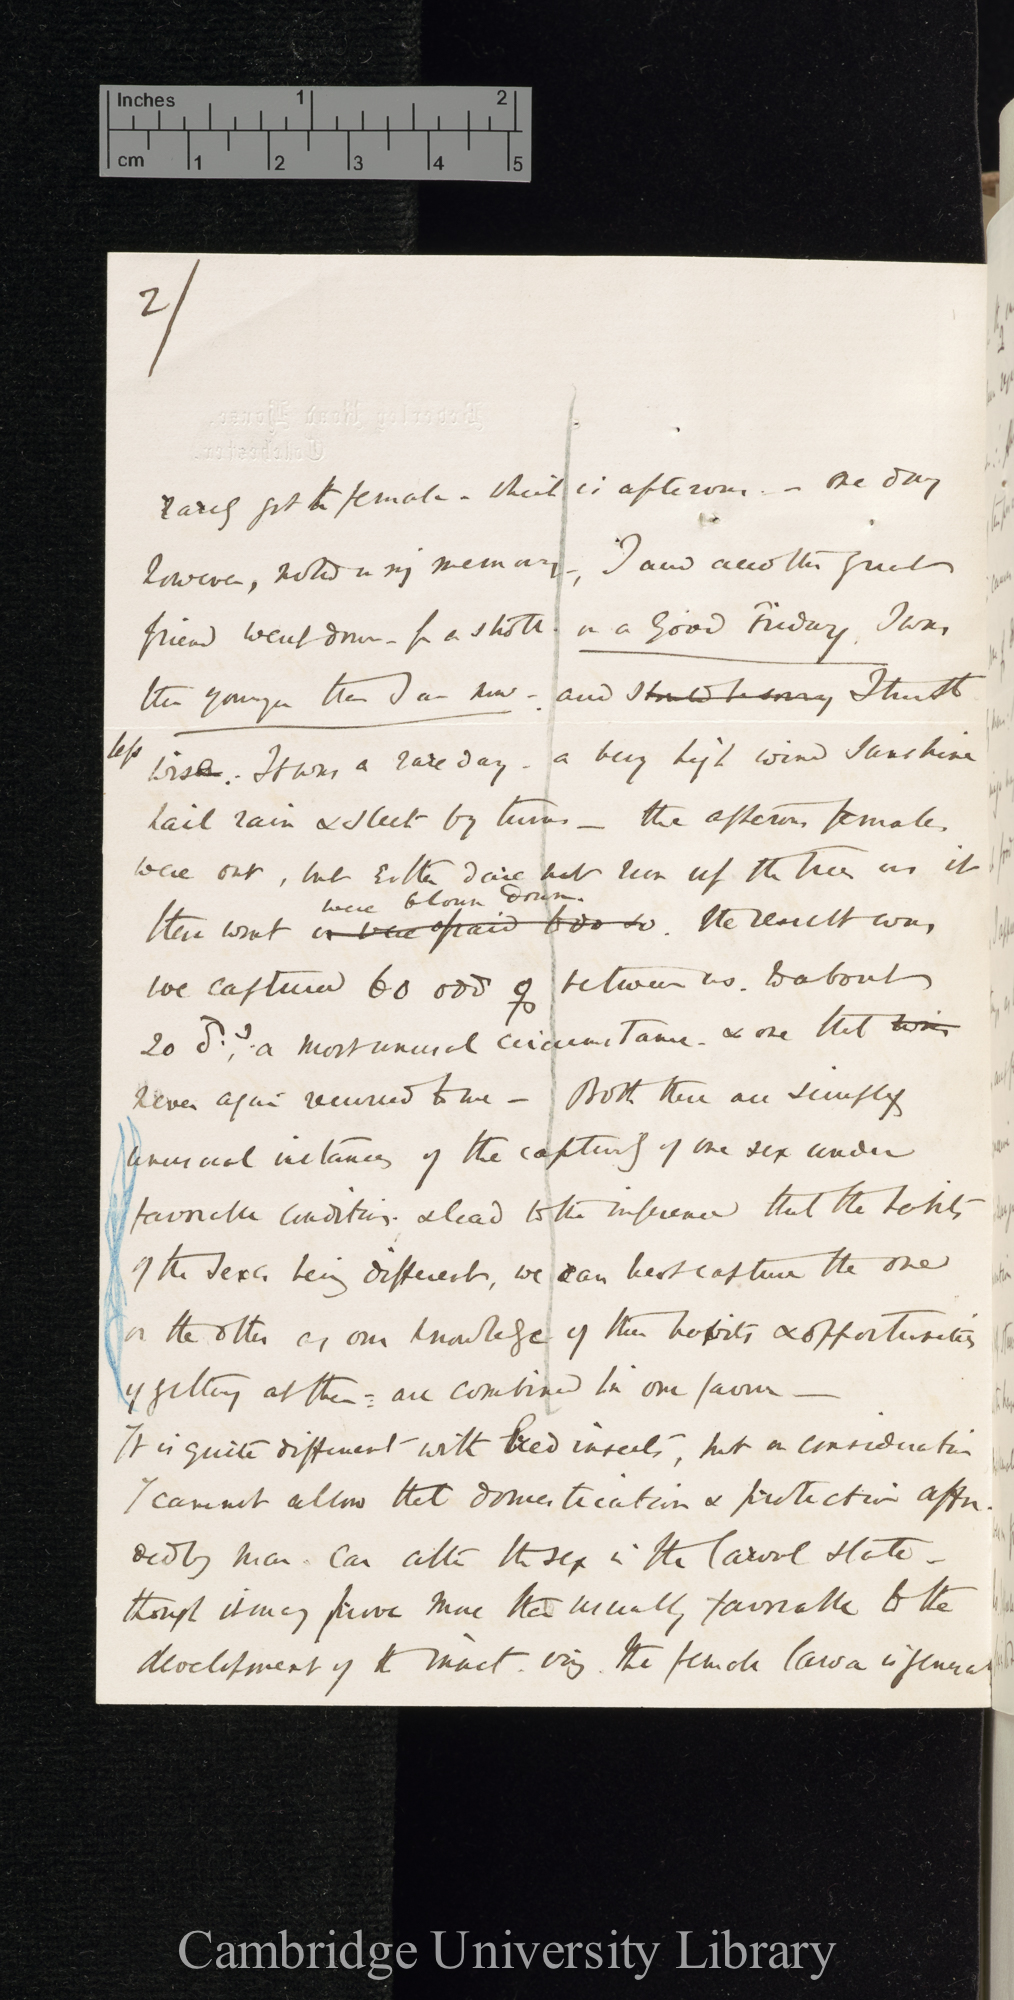 Inches 1 2
cm 1 2 3 4 5
2/
Beverley Road House.
Colchester.
rarely get the female - which is apterous. - One day
however, noted in my memory -, I and another great
friend went down - for a stroll - on a Good Friday. I was
then younger than I am now -. and should be sorry I trust
less wise. It was a rare day - a very high wind Sunshine
hail rain & sleet by turns - the apterous females
were out, but either dare not run up the trees as is their
wont or were afraid to do so. The result was,
were blown down.
we captured 60 odd ♀ between us. & about
20 ♂.s, a most unusual circumstance - & one that
never again recurred to me - Both these are simply
unusual instances of the capturing of one sex under
favorable conditions. & lead to the inference that the habits
of the sexes being different, we can best capture the one
or the other as our knowledge of their habits & opportunities
of getting at them = are combined in our favour —
It is quite different with bred insects, but on consideration
I cannot allow that domestication & protection affor-
ded by man - can alter the sex in the larval state -
though it may prove more than usually favorable to the
development of the insect. viz. the female larva is general
Cambridge University Library